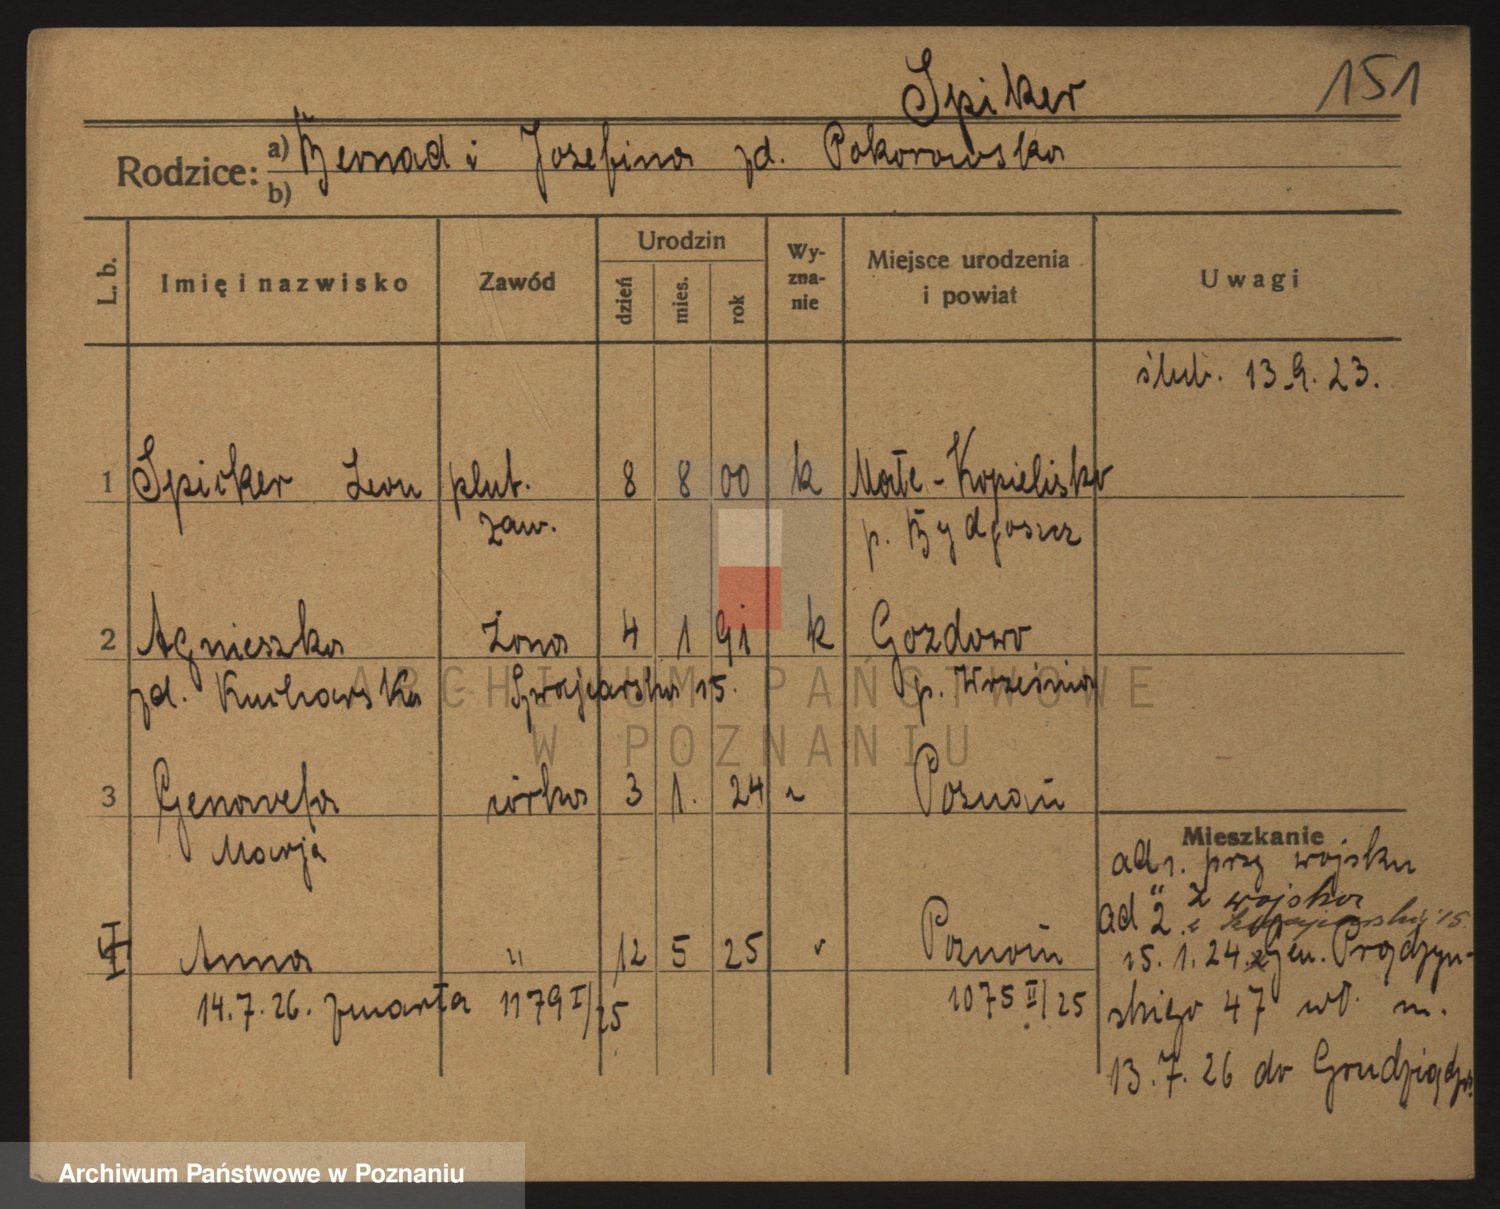 Spiker 151
Rodzice: a) Bernad i Josefina zd. Pokorowska
b)
L. b. Imię i nazwisko Zawód Urodzin dzień mies. rok Wyznanie Miejsce urodzenia i powiat Uwagi
ślub. 13.9.23.
1 Spicker Leon plut. 8 8 00 k Małe-Kopielisko
zaw. p. Bydgoszcz
2 Agnieszka żona 4 1 91 k Gozdowo
zd. Kucharska Szwajcarska 15. p. Września
3 Genowefa córka 3 1. 24 Poznań
Marja
Mieszkanie
ad 1. przy wojsku
ad 2. z wojska
4 Anna " 12 5 25 Poznań
15.1.24. Gen. Prądzyń-
14.7.26. zmarła 1179 I/25 1075 II/25
skiego 47 m.
13.7.26 do Grudziądza
ARCHIWUM PAŃSTWOWE
W POZNANIU
Archiwum Państwowe w Poznaniu